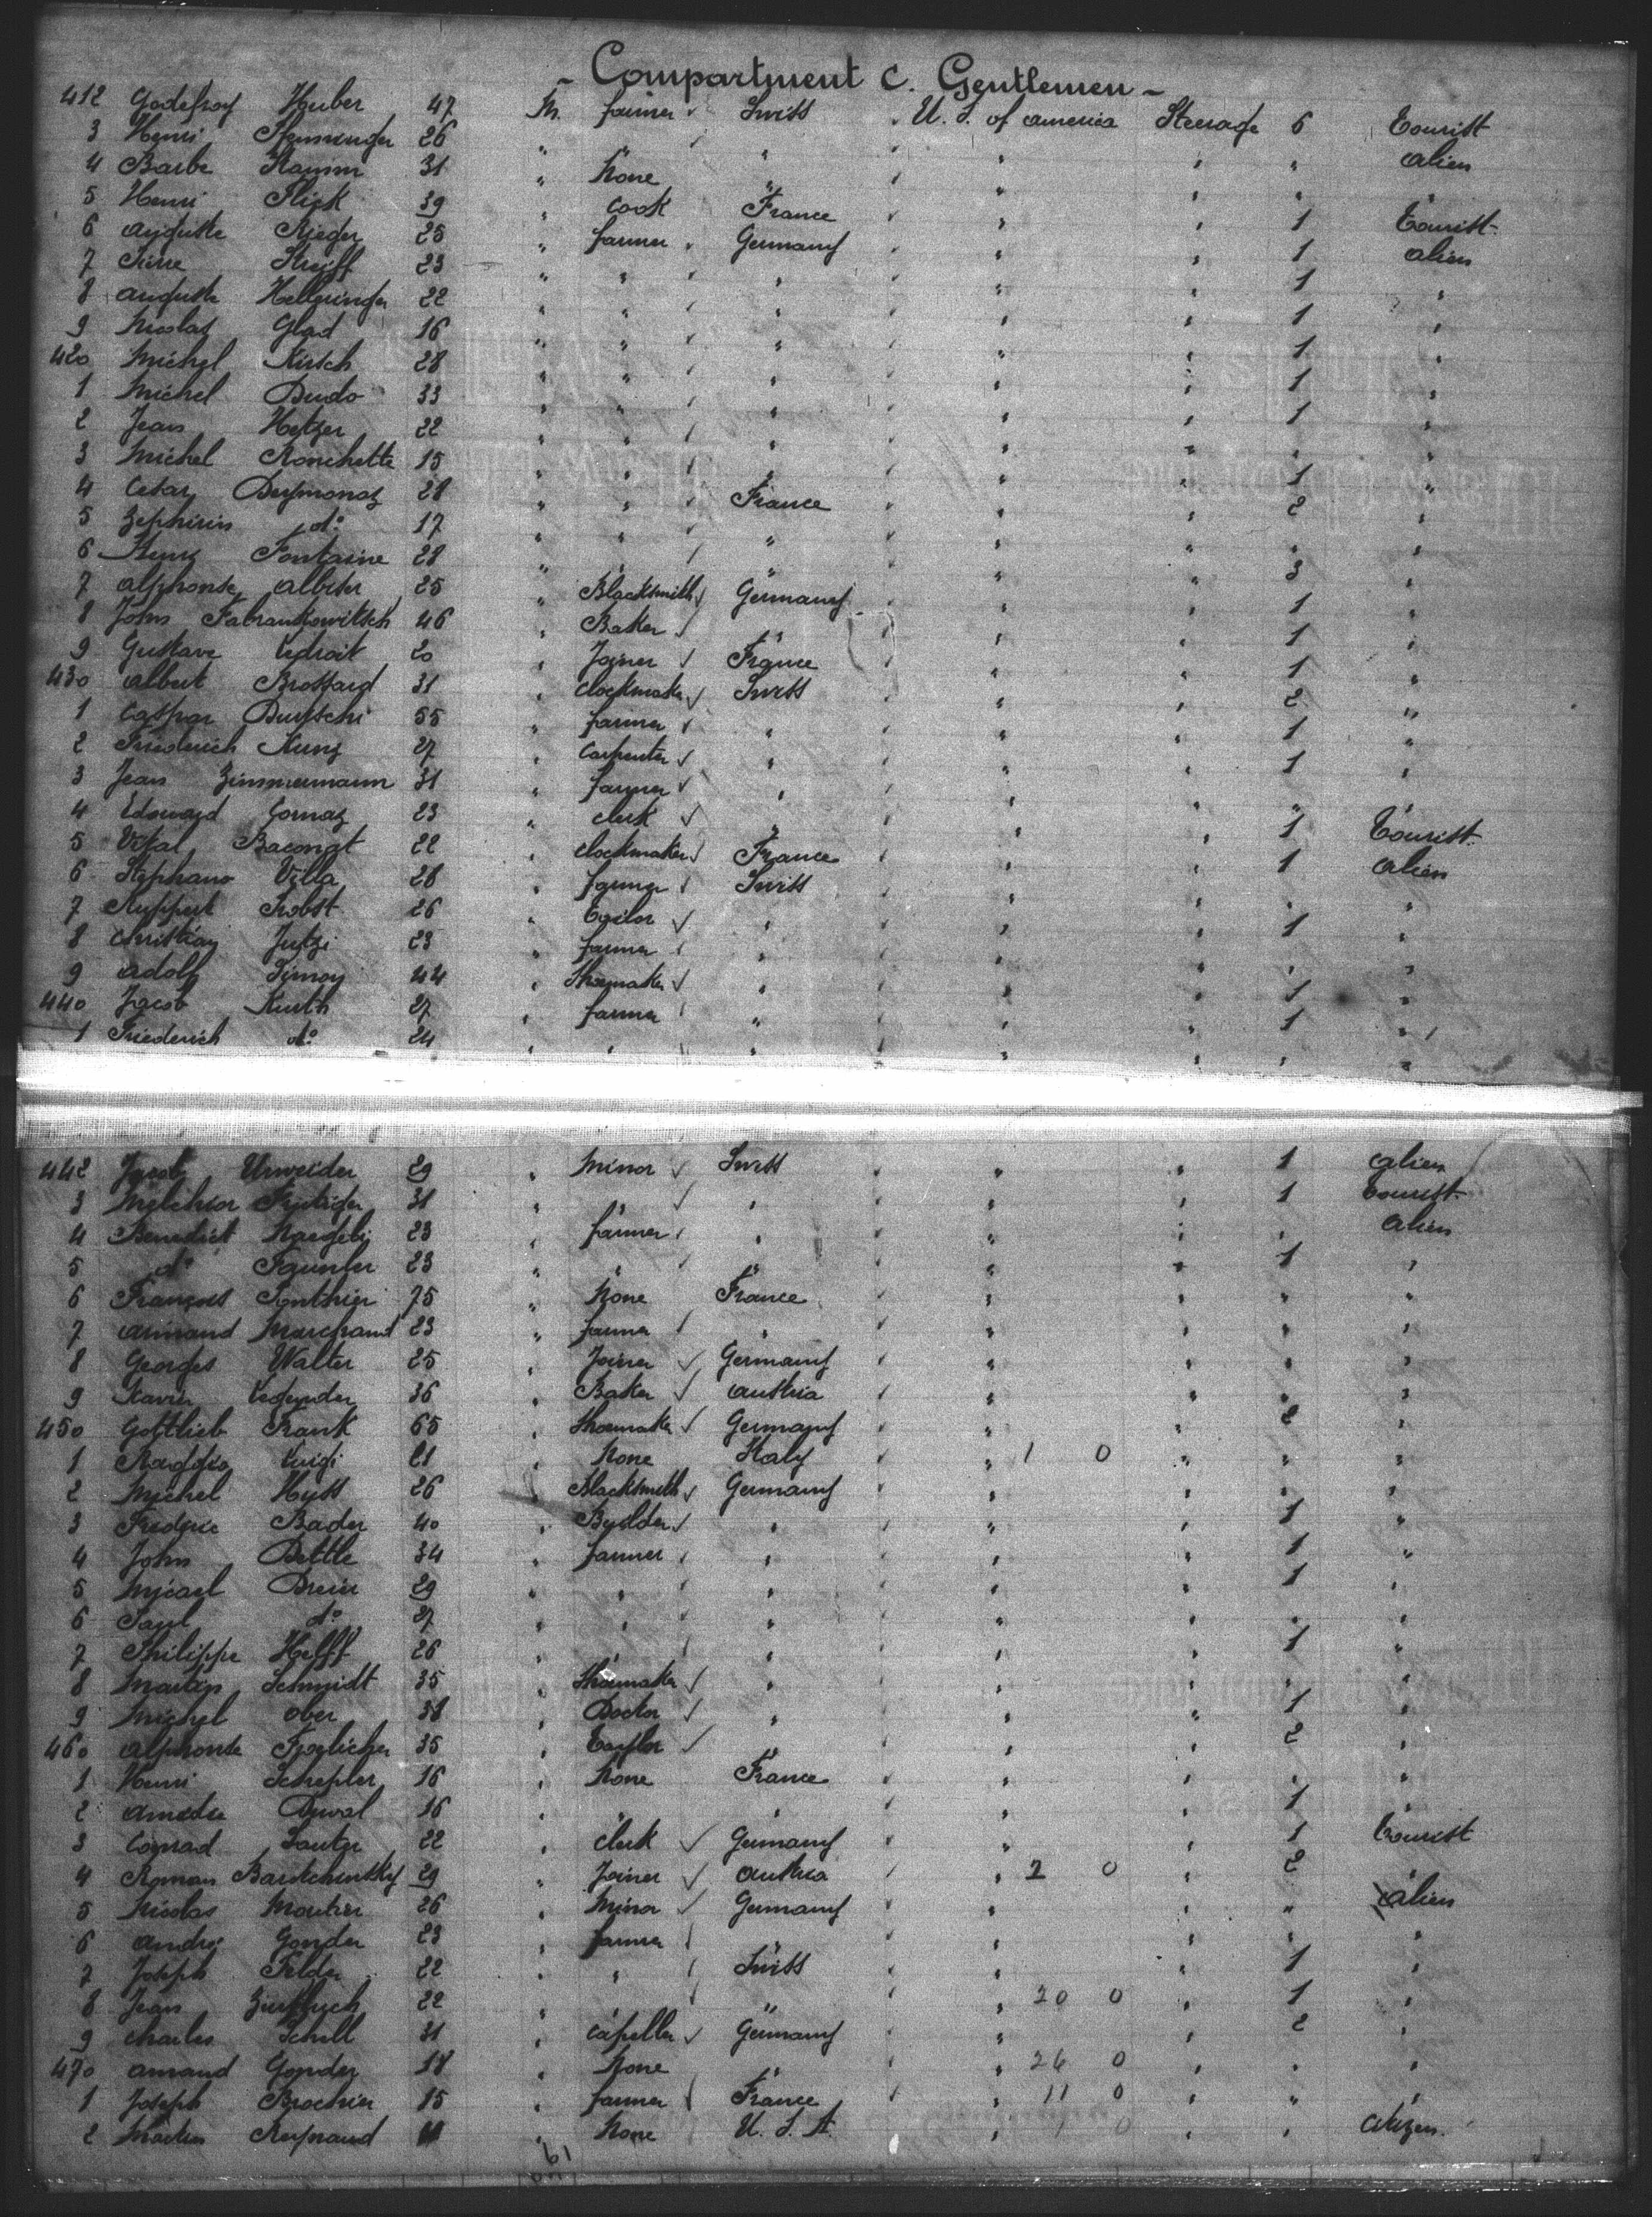 - Compartment C. Gentlemen -
412 Godefroy Huber 47 M. farmer Swiss U. S. of america Steerage 6 Tourist
3 Henri 26 " " " " " " alien
4 Barbe Hamm 31 " None " " " " "
5 Henri Flick 39 " Cook France " " 1 Tourist
6 Auguste Rieger 25 " farmer Germany " " 1 alien
7 Streiff 23 " " " " " 1 "
8 Auguste Hellringer 22 " " " " " 1 "
9 Nicolas Glad 16 " " " " " 1 "
420 Michel Kirsch 28 " " " " " 1 "
1 Michel Dudo 33 " " " " " 1 "
2 Jean Hetzer 22 " " " " " " "
3 Michel Ronchette 15 " " " " " 1 "
4 Cesar Deymonaz 28 " " France " " 2 "
5 Zephirin do 17 " " " " " " "
6 Fontaine 28 " " " " " 3 "
7 Alphonse Albiser 25 " Blacksmith Germany " " 1 "
8 John Fabrankowitsch 46 " Baker " " " 1 "
9 Gustave Ledroit 20 " Joiner France " " 1 "
430 Albert Brossard 31 " Clockmaker Swiss " " 2 "
1 Caspar Durtschi 55 " farmer " " " 1 "
2 Friederich Kunz 27 " Carpenter " " " 1 "
3 Jean Zimmermann 31 " farmer " " " " "
4 Edouard Gornaz 23 " Clerk " " " 1 Tourist
5 Vital Bacongt 22 " Clockmaker France " " 1 alien
6 Stephano Villa 28 " farmer Swiss " " " "
7 Ruppert Probst 26 " Tailor " " " 1 "
8 Christian Jutzi 23 " farmer " " " " "
9 Adolf Simon 44 " Shoemaker " " " 1 "
440 Jacob Kurth 27 " farmer " " " 1 "
1 Friederich do 24 " " " " " " "
442 Jacob Urweider 29 " Minor Swiss " " 1 alien
3 Melchior 31 " " " " " 1 Tourist
4 Benedict Naegeli 23 " farmer " " " " alien
5 do 23 " " " " " 1 "
6 François Ponthier 75 " None France " " " "
7 Armand Marchand 23 " farmer " " " " "
8 Georges Walter 25 " Joiner Germany " " " "
9 Xavier 36 " Baker Austria " " " "
450 Gottlieb Frank 65 " Shoemaker Germany " " 2 "
1 Raggio Luigi 21 " None Italy " 1 0 " " "
2 Michel Hyss 26 " Blacksmith Germany " " " "
3 Frederic Bader 40 " Builder " " " 1 "
4 John Dettle 34 " farmer " " " 1 "
5 Micael Dreier 29 " " " " " 1 "
6 Paul do 27 " " " " " " "
7 Philippe Helff 26 " " " " " 1 "
8 Martin Schmidt 35 " Shoemaker " " " " "
9 Michel Ober 38 " Doctor " " " 1 "
460 Alphonse Froelicher 35 " Taylor " " " 2 "
1 Henri Schepler 16 " None France " " " "
2 Amedée Duval 16 " " " " " 1 "
3 Conrad Sauter 22 " Clerk Germany " " 1 Tourist
4 Roman 29 " Joiner Austria " 2 0 " 2 "
5 Nicolas Moutier 26 " Minor Germany " " " Alien
6 André Gonder 23 " farmer " " " " "
7 Joseph Felder 22 " " Swiss " " 1 "
8 Jean 22 " " " " 20 0 " 1 "
9 Charles Schell 31 " Capeller Germany " " 2 "
470 Amand Gonder 18 " None " " 26 0 " " "
1 Joseph Brochier 15 " farmer France " 11 0 " " "
2 Reynaud None U. S. A. " 1 0 " " Citizen